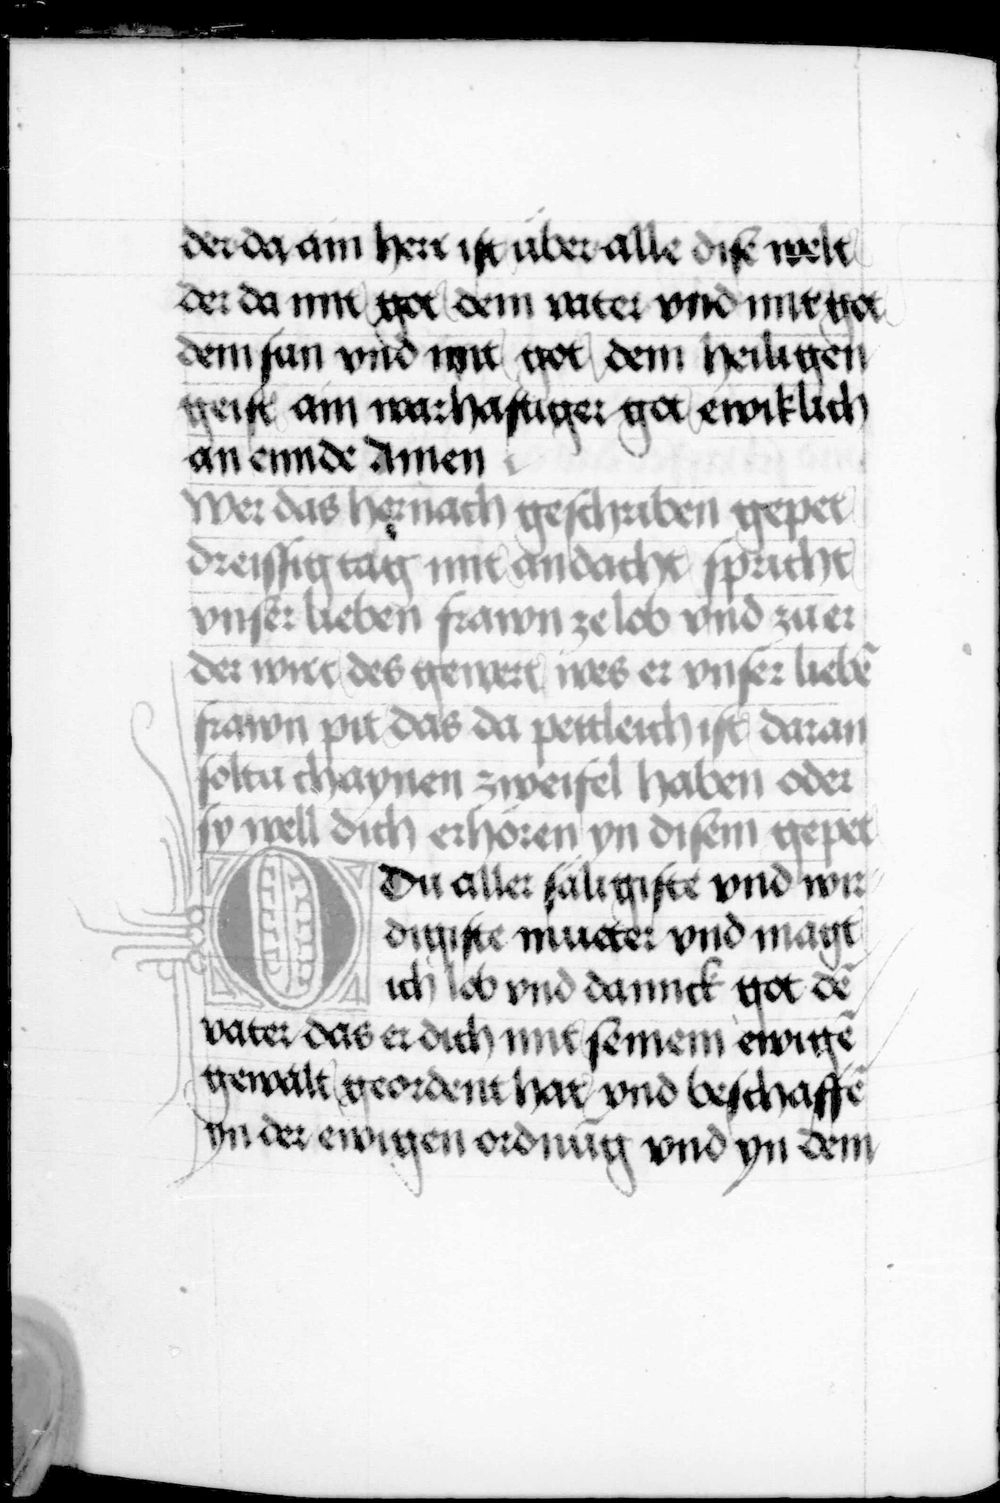 der da ain herr ist über alle dise welt
der da mit got dem vater vnd mit got
dem sun vnd mit got dem heiligen
geist ain warhaftiger got ewiklich
an ennde Amen
Wer das hernach geschriben gepet
dreissig tag mit andacht spricht
vnser lieben frawn ze lob vnd zu er
der wirt des gewert wes er vnser liebē
frawn pit das da petleich ist daran
soltu chaynen zweifel haben oder
sy well dich erhören yn disem gepet
O Du aller säligiste vnd wir
digiste mueter vnd magt
ich lob vnd dannck got dē
vater das er dich mit seinem ewigē
gewalt geordent hat vnd beschaffē
yn der ewigen ordnūg vnd yn dem